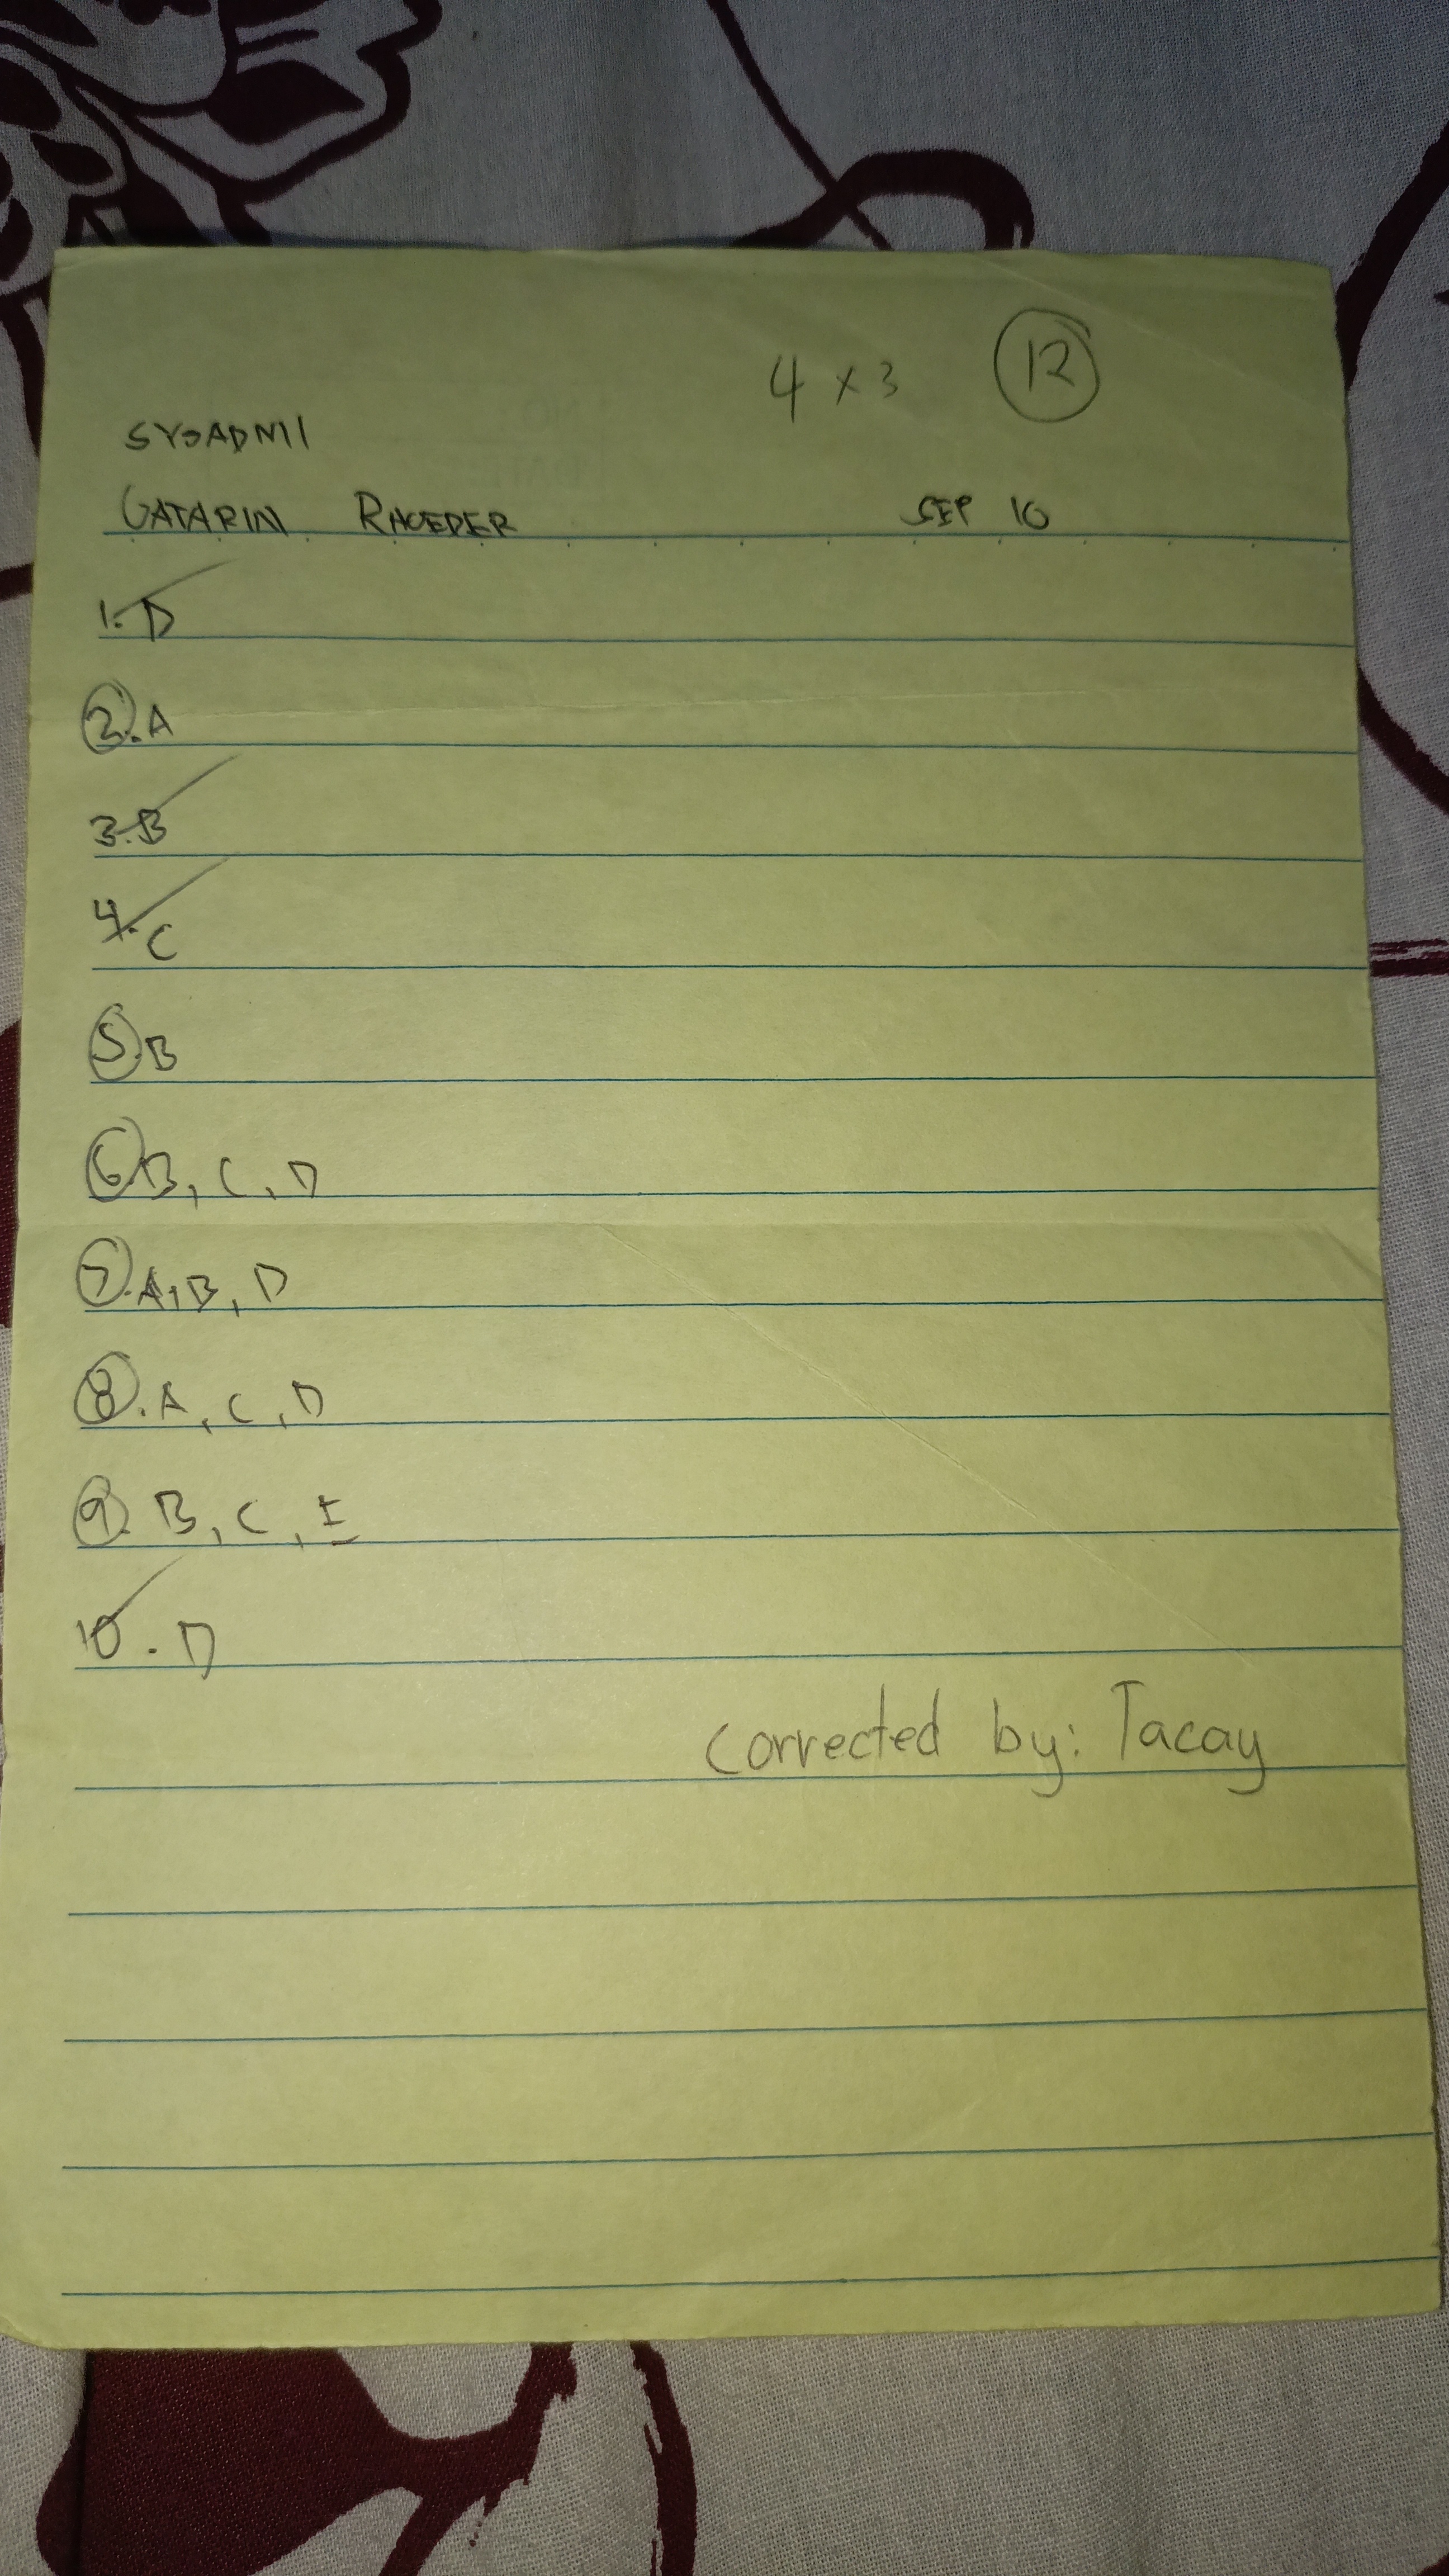 4 x 3 12
SYSADM1
GATARIN RHOEDER SEP 10
1. D
2. A
3. B
4. C
5. B
6. B, C, D
7. A, B, D
8. A, C, D
9. B, C, E
10. D
Corrected by: Tacay